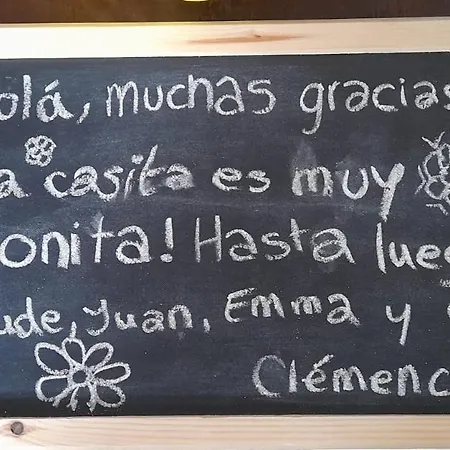 olá, muchas gracias
a casita es muy
onita! Hasta lueg
ude, Juan, Emma y
Clémenc